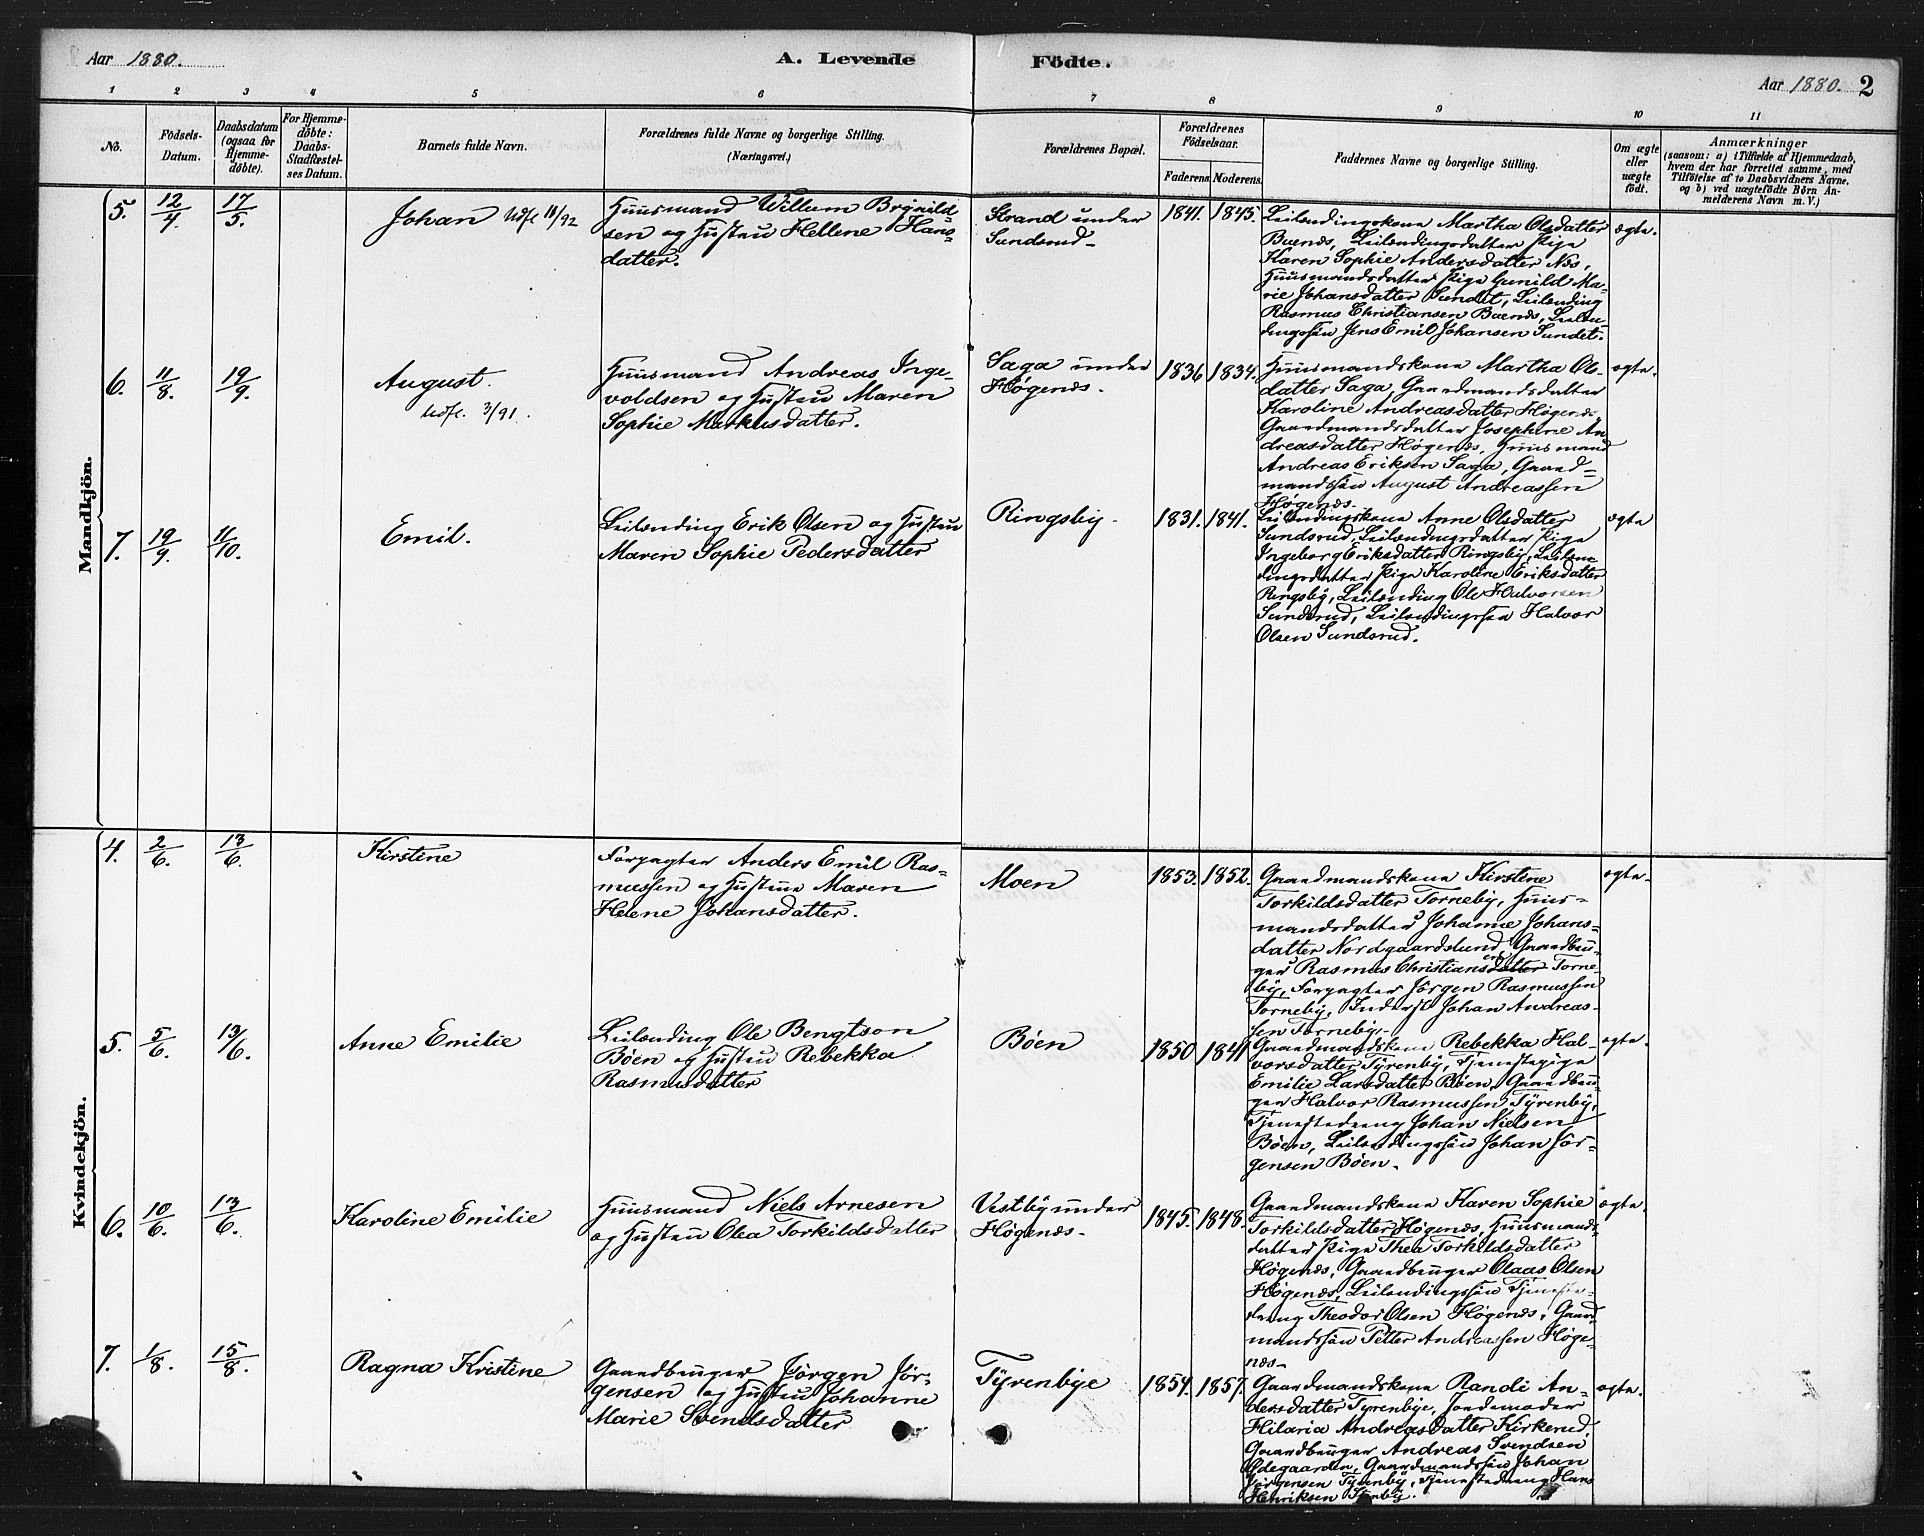 Aar 1880.
A. Levende Födte.
Aar 1880. 2
1 2 3 4 5 6 7 8 9 10 11
No.
Födsels-Datum.
Daabsdatum (ogsaa for Hjemme-döbte).
For Hjemme-döbte: Daabs-Stadfæstel-ses Datum.
Barnets fulde Navn.
Forældrenes fulde Navne og borgerlige Stilling. (Næringsvei.)
Forældrenes Bopæl.
Forældrenes Födselsaar.
Faderens. Moderens.
Faddernes Navne og borgerlige Stilling.
Om ægte eller uægte födt.
Anmærkninger
(saasom: a) i Tilfælde af Hjemmedaab,
hvem der har forrettet samme, med
Tilföielse af to Daabsvidners Navne,
og b) ved uægtefödte Börn An-
melderens Navn m. V.)
Mandkjön.
5. 12/4. 17/5.
Johan Udfl 18/92
Huusmand Willum Brynild-
sen og Hustru Hellene Hans-
datter.
Strand under
Sundsrud-
1841. 1843.
Leilændingskone Martha Olsdatter
Buenæs, Leilændingsdatter Pige
Karen Sophie Andersdatter Næs,
Huusmandsdatter Pige Gunild Ma-
rie Johansdatter Sundet, Leilænding
Rasmus Christiansen Buenæs, Leilæn-
dingssøn Jens Emil Johansen Sundet.
ægte.
6. 11/8. 19/9.
August.
Udfl. 3/91.
Huusmand Andreas Inge-
voldsen og Hustru Maren
Sophie Markusdatter.
Saga under
Høgenæs.
1836 1834.
Huusmandskone Martha Ols-
datter Saga, Gaardmandsdatter
Karoline Andreasdatter Høgenæs
Gaardmandsdatter Josephine An
dreasdatter Høgenæs, Huusmand
Andreas Eriksen Saga, Gaard-
mandssøn August Andreassen
Høgenæs.
ægte.
7. 19/9. 11/10.
Emil.
Leilænding Erik Olsen og Hustru
Maren Sophie Pedersdatter
Ringsby.
1831. 1841.
Leilændingskone Anne Olsdatter
Sundsrud, Leilændingsdatter Pige
Ingeborg Eriksdatter Ringsby, Leilæn-
dingsdatter Pige Karoline Eriksdatter
Ringsby, Leilænding Ole Halvorsen
Sundsrud, Leilændingssøn Halvor
Olsen Sundsrud.
ægte
Kvindekjön.
4. 2/6. 13/6.
Kirstine
Forpagter Anders Emil Ras-
mussen og Hustru Maren
Helene Johansdatter.
Moen
1853. 1852.
Gaardmandskone Kirstine
Torkildsdatter Torneby, Huus-
mandsdatter Johanne Johans-
datter Nordgaardslund, Gaardbru-
ger Rasmus Christiansdatter en Torne-
by, Forpagter Jörgen Rasmussen
Torneby, Inderst Johan Andreas-
sen Torneby.
ægte.
5. 5/6. 13/6.
Anne Emilie
Leilænding Ole Bengtson
Böen og Hustru Rebekka
Rasmusdatter
Böen
1850 1841
Gaardmandskone Rebekka Hal-
vorsdatter Tyrenby, Tjenestepige
Emilie Larsdatter Böen, Gaardbru-
ger Halvor Rasmussen Tyrenby,
Tjenestedreng Johan Nielsen
Böen, Leilændingssøn Johan Jör-
gensen Böen.
ægte.
6. 10/6. 13/6.
Karoline Emilie
Huusmand Niels Arnesen
og Hustru Olea Torkildsdatter
Vestby under
Høgenæs.
1845. 1848.
Gaardmandskone Karen Sophie
Torkildsdatter Høgenæs, Huusmands-
datter Pige Thea Torkildsdatter
Høgenæs, Gaardbruger Olaas Olsen
Høgenæs, Leilændingssøn Tjeneste-
dreng Theodor Olsen Høgenæs, Gaard
mandssøn Petter Andreassen Høge-
næs.
ægte.
7. 1/8. 15/8.
Ragna Kristine
Gaardbruger Jörgen Jör-
gensen og Hustru Johanne
Marie Svendsdatter
Tyrenbye
1854. 1857.
Gaardmandskone Randi An-
dersdatter Tyrenbye, Jordemoder
Hilaria Andreasdatter Kirkerud,
Gaardbruger Andreas Svendsen
Ødegaarden, Gaardmandssøn Johan
Jörgensen Tyrenby, Tjenestedreng Hans
Henriksen Tyrenby.
ægte.